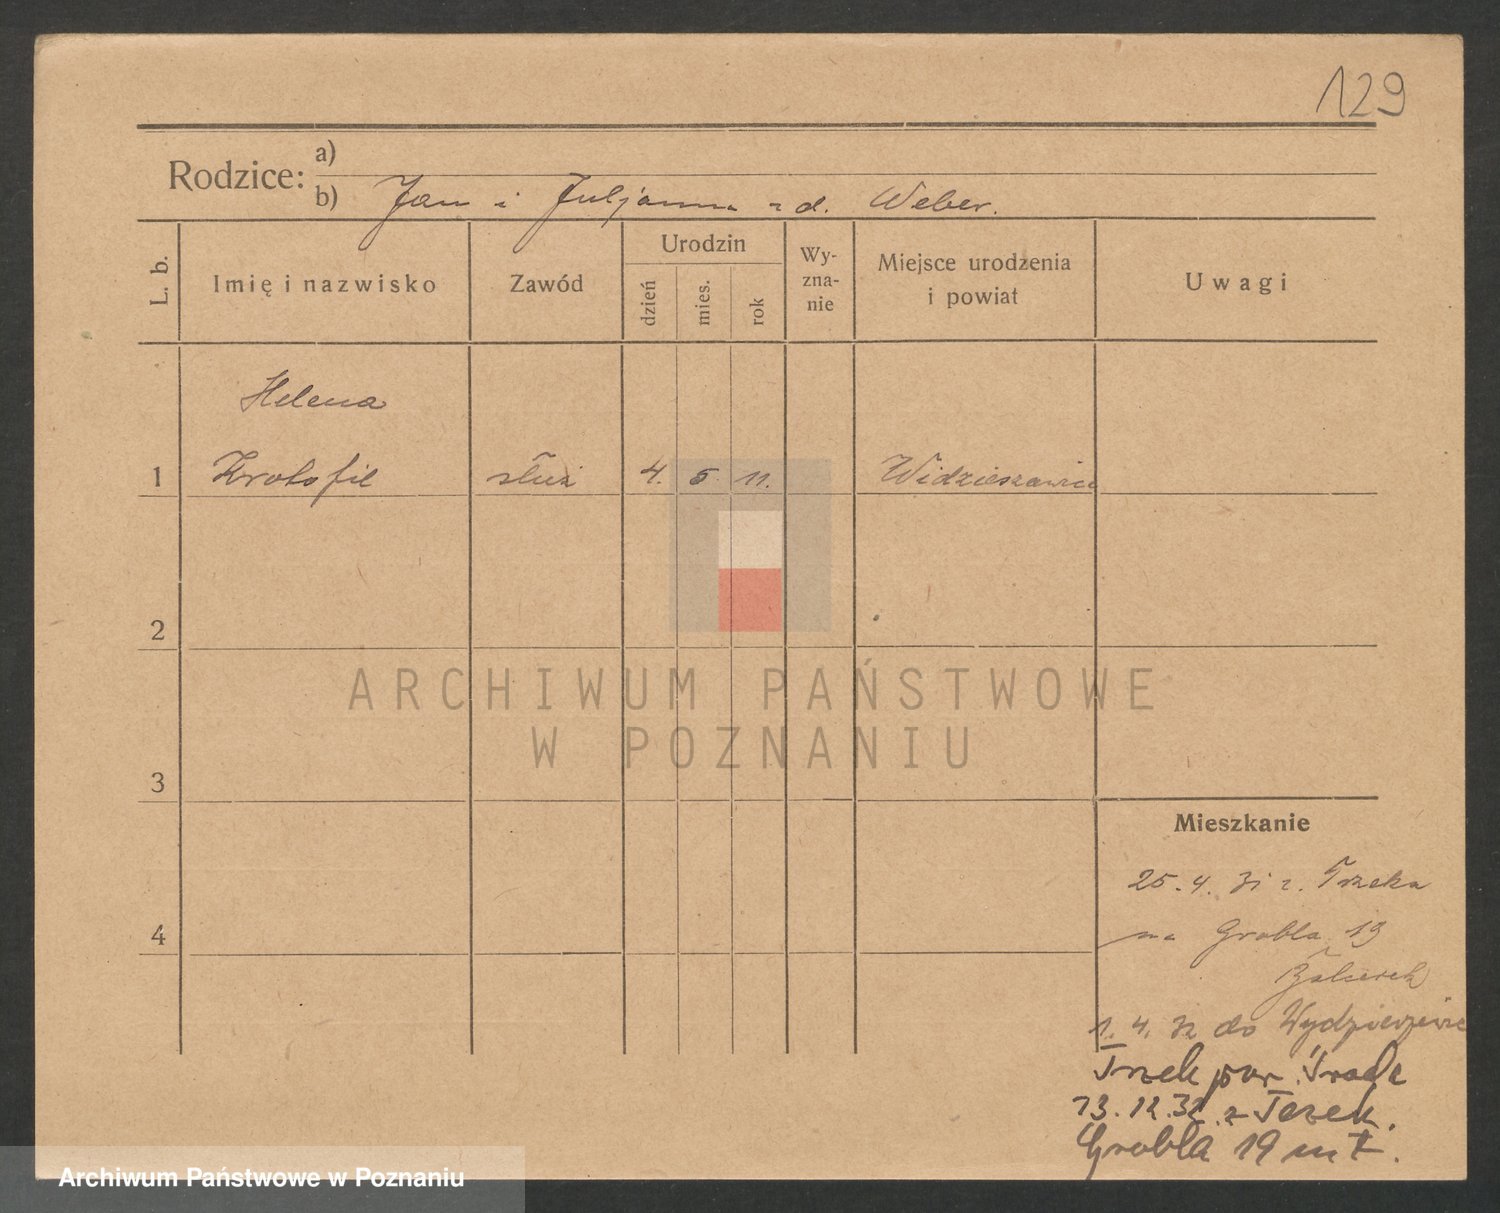 129
Rodzice: a)
b) Jan i Juljanna z d. Weber.
L. b.
Imię i nazwisko
Zawód
Urodzin
dzień
mies.
rok
Wy-
zna-
nie
Miejsce urodzenia
i powiat
Uwagi
Helena
1 Krotofil służ 4. 5. 11. Widzieszewice
2
ARCHIWUM PAŃSTWOWE
W POZNANIU
3
Mieszkanie
25. 4. 31 z. Trzeka
na Grobla 19
4
1. 4. 32 do
Trzek pow. Środa
13. 12. 32. z Trzek.
Grobla 19 m 7.
Archiwum Państwowe w Poznaniu